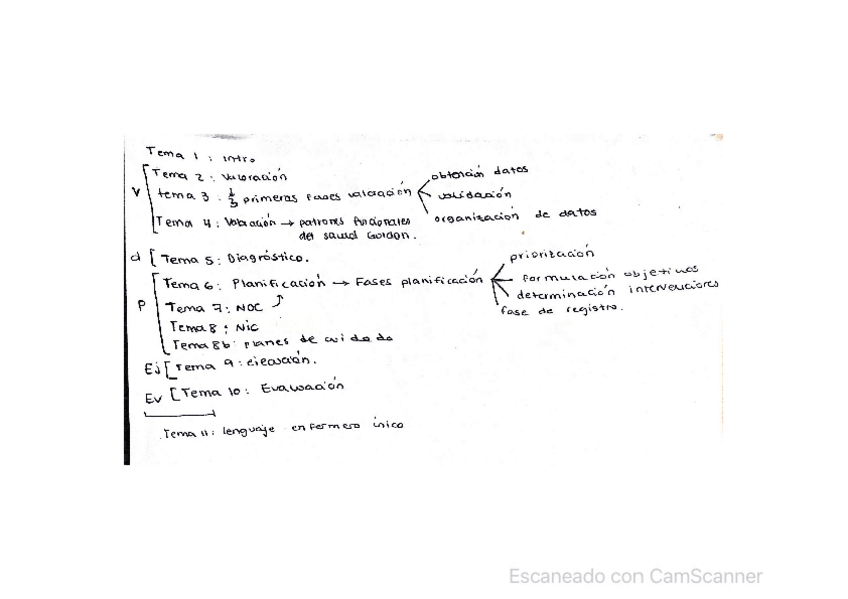 Tema 1: intro
Tema 2: Valoración
V
tema 3: primeras fases valoración
obtención datos
validación
organización de datos
Tema 4: Valoración → patrones funcionales
del salud Gordon.
d [ Tema 5: Diagnóstico.
Tema 6: Planificación → Fases planificación
priorización
formulación objetivos
determinación intervenciones
fase de registro.
P
Tema 7: NOC
Tema 8: Nic
Tema 8b: planes de cuidado
Ej [ Tema 9: ejecución.
Ev [ Tema 10: Evaluación
Tema 11: lenguaje enfermero único
Escaneado con CamScanner